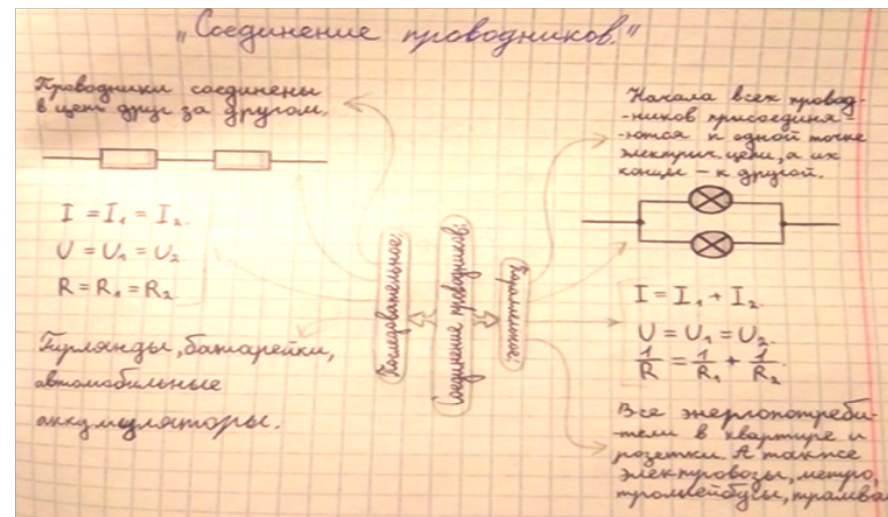 „Соединение проводников."
Проводники соединены
в цепь друг за другом.
I = I₁ = I₂
U = U₁ = U₂
R = R₁ = R₂
Гирлянды, батарейки,
автомобильные
аккумуляторы.
Последовательное:
Соединение проводников:
Параллельное:
Начала всех провод-
-ников присоединя-
-ются к одной точке
электрич. цепи, а их
концы – к другой.
I = I₁ + I₂.
U = U₁ = U₂.
1/R = 1/R₁ + 1/R₂.
Все энергопотреби-
-тели в квартире и
розетки. А также
электровозы, метро,
троллейбусы, трамва